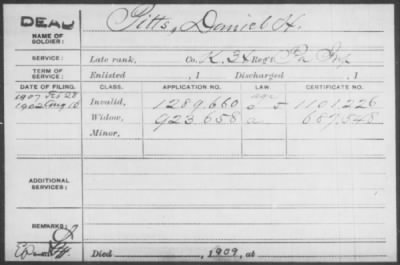 DEAD
Pitts, Daniel H.
NAME OF
SOLDIER:
SERVICE:
Late rank, Co. K. 34 Reg't Pa Inf
TERM OF
SERVICE:
Enlisted , 1 Discharged , 1
DATE OF FILING.
CLASS.
APPLICATION NO.
LAW
CERTIFICATE NO.
1907 Feb 28
Invalid, 1289,660 1101,226
Widow, 923,658 687,548
Minor,
ADDITIONAL
SERVICES:
REMARKS:
Died , 1909, at